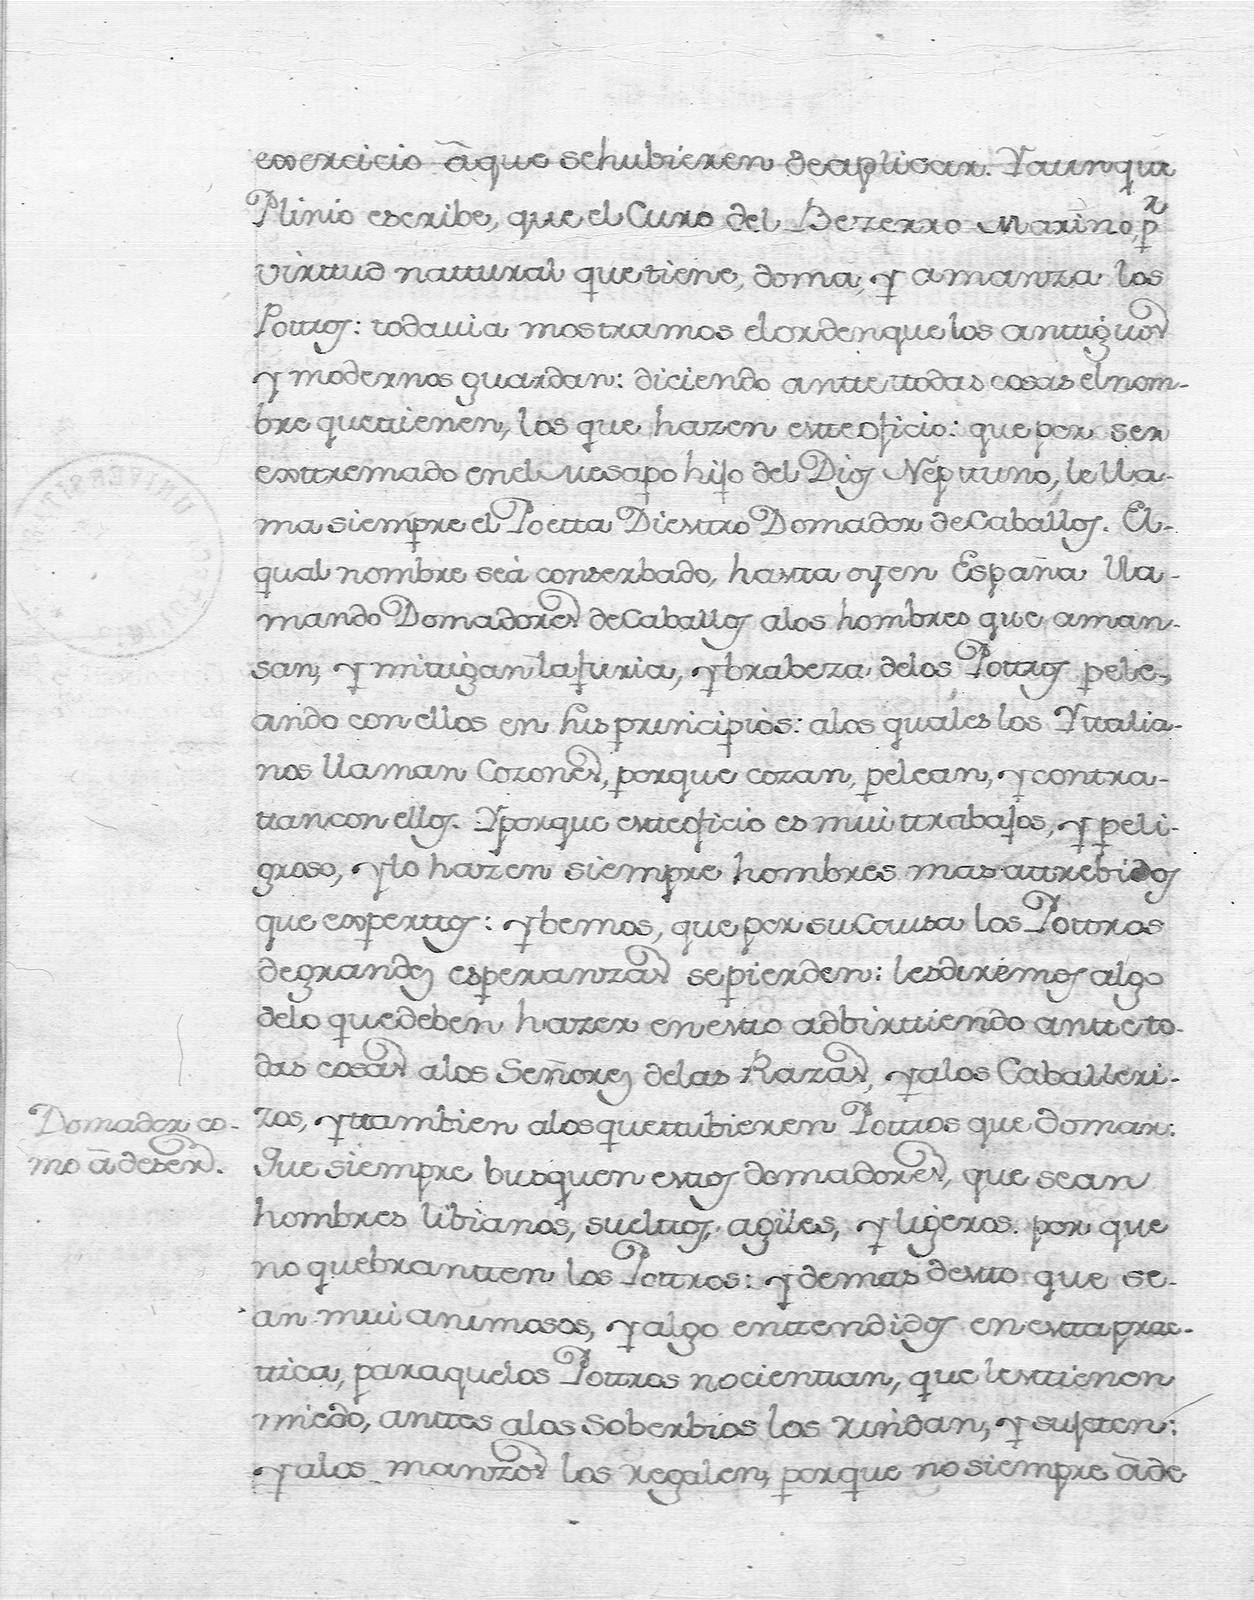 exercicio â que sehubieren deaplicar. Yaunque
Plinio escribe, que el Cuero del Bezerro Marino, pr
virttud nattural que tiene, doma, y amanza los
Pottros: todauia mostramos elordenque los anttiguos
y modernos guardan: diciendo antte ttodas cosas elnom-
bre quettienen, los que hazen estte oficio: que por ser
exttremado enel Mesapo hijo del Dios Nepttuno, le lla-
ma siempre el Poetta Diesttro Domador deCaballos. El-
qual nombre seà conserbado, hasta oyen España lla-
mando Domadores deCaballos alos hombres que aman-
san, y mittigan lafuria, y brabeza delos Pottros pele-
ando con ellos en susprincipios: alos quales los Yttalia-
nos llaman Cozones, porque cozan, pelean, y contra-
ttancon ellos. Yporque estteoficio es mui ttrabajos, y peli-
groso, ylo hazen siempre hombres mas attrebidos
que experttos: ybemos, que por suCausa los Pottros
degrandes esperanzas sepierden: lesdirémos algo
delo quedeben hazer enestto adbirttiendo antte to-
das cosas alos Señores delas Razas, yalos Caballeri-
zos, yttambien alosquettubieren Pottros que domar:
Que siempre busquen esttos domadores, que sean
hombres libianos, suelttos, agiles, y ligeros. por que
no quebrantten los Pottros: y demas destto que se-
an mui animosos, y algo enttendidos en esttaprac-
ttica, paraquelos Pottros nocienttan, que lesttienen
miedo, anttes alos soberbios los rindan, y sujeten:
y alos manzos los regalen, porque no siempre âde
Domador co-
mo âdeser.